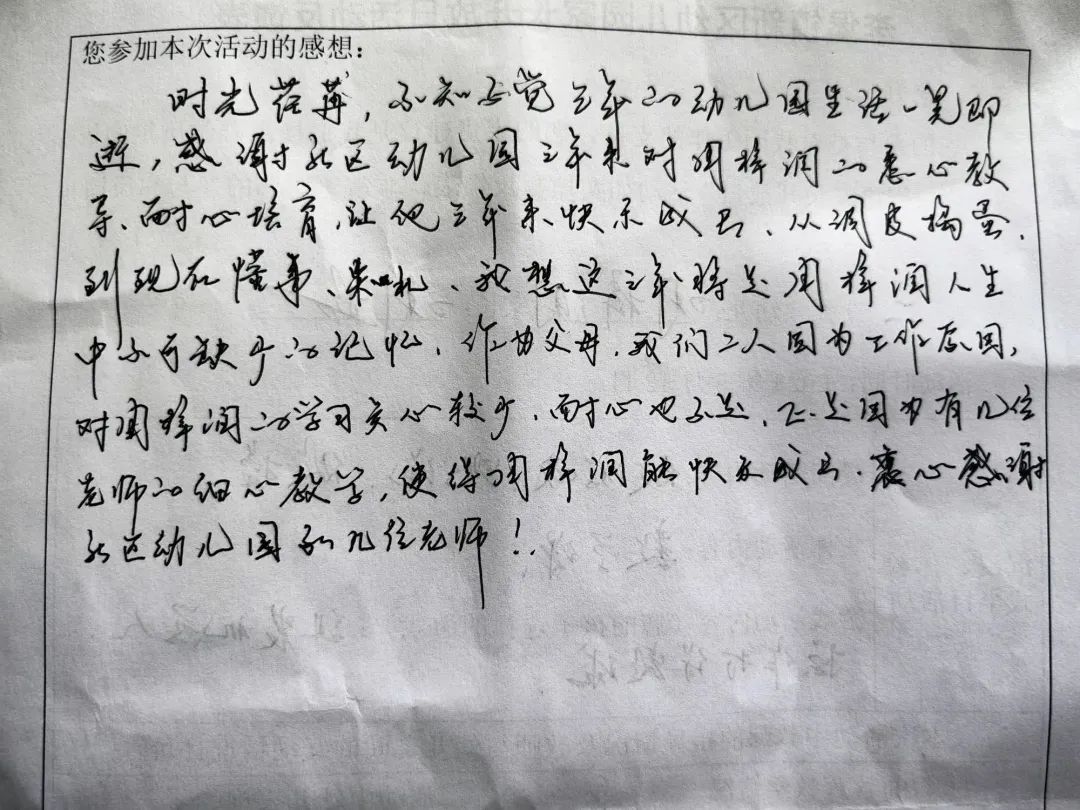 您参加本次活动的感想：
时光荏苒，不知不觉三年的幼儿园生活一晃即
逝，感谢新区幼儿园三年来对周梓润的悉心教
导、耐心培育，让他三年来快乐成长、从调皮捣蛋、
到现在懂事、知礼、我想这三年将是周梓润人生
中不可缺少的记忆、作为父母，我们二人因为工作原因，
对周梓润的学习关心较少、耐心也不足，正是因为有几位
老师的细心教学，使得周梓润能快乐成长、衷心感谢
新区幼儿园和几位老师！